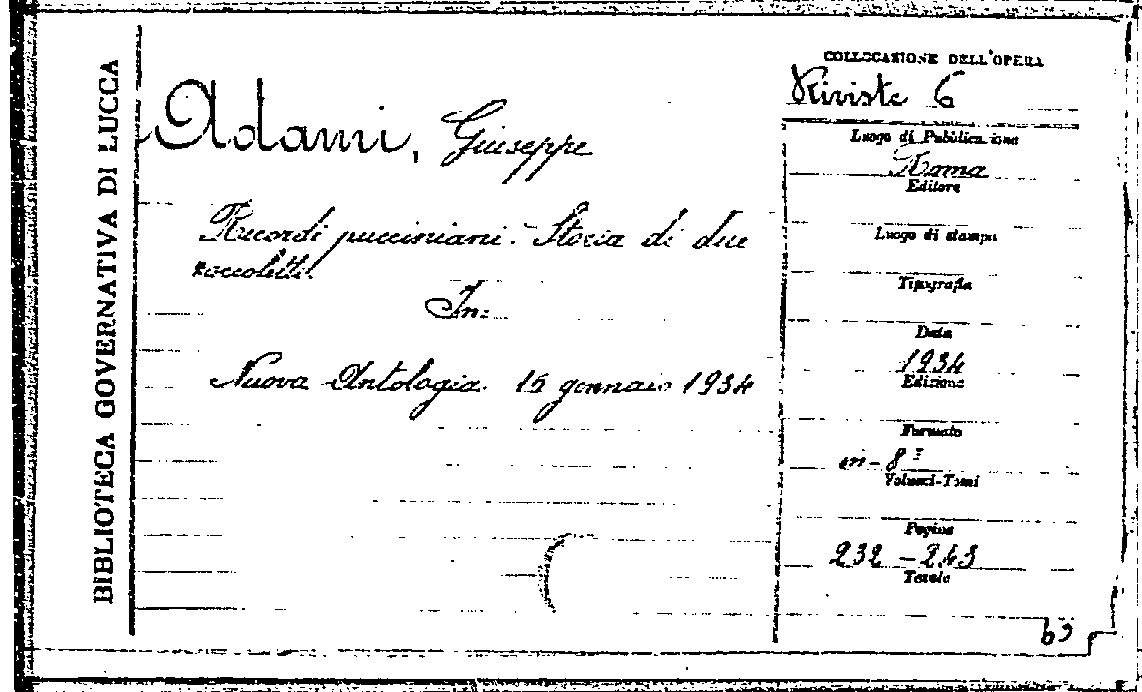 BIBLIOTECA GOVERNATIVA DI LUCCA
Adami, Giuseppe
Ricordi pucciniani. Storia di due
In:
Nuova Antologia. 15 gennaio 1934
COLLOCASIONE DELL'OPERA
Riviste 6
Luogo di Pubblicazione
Roma
Editore
Luogo di stampa
Tipografia
Data
1934
Edizione
Formato
in-8º
Volumi-Tomi
Pagine
232-243
Tavole